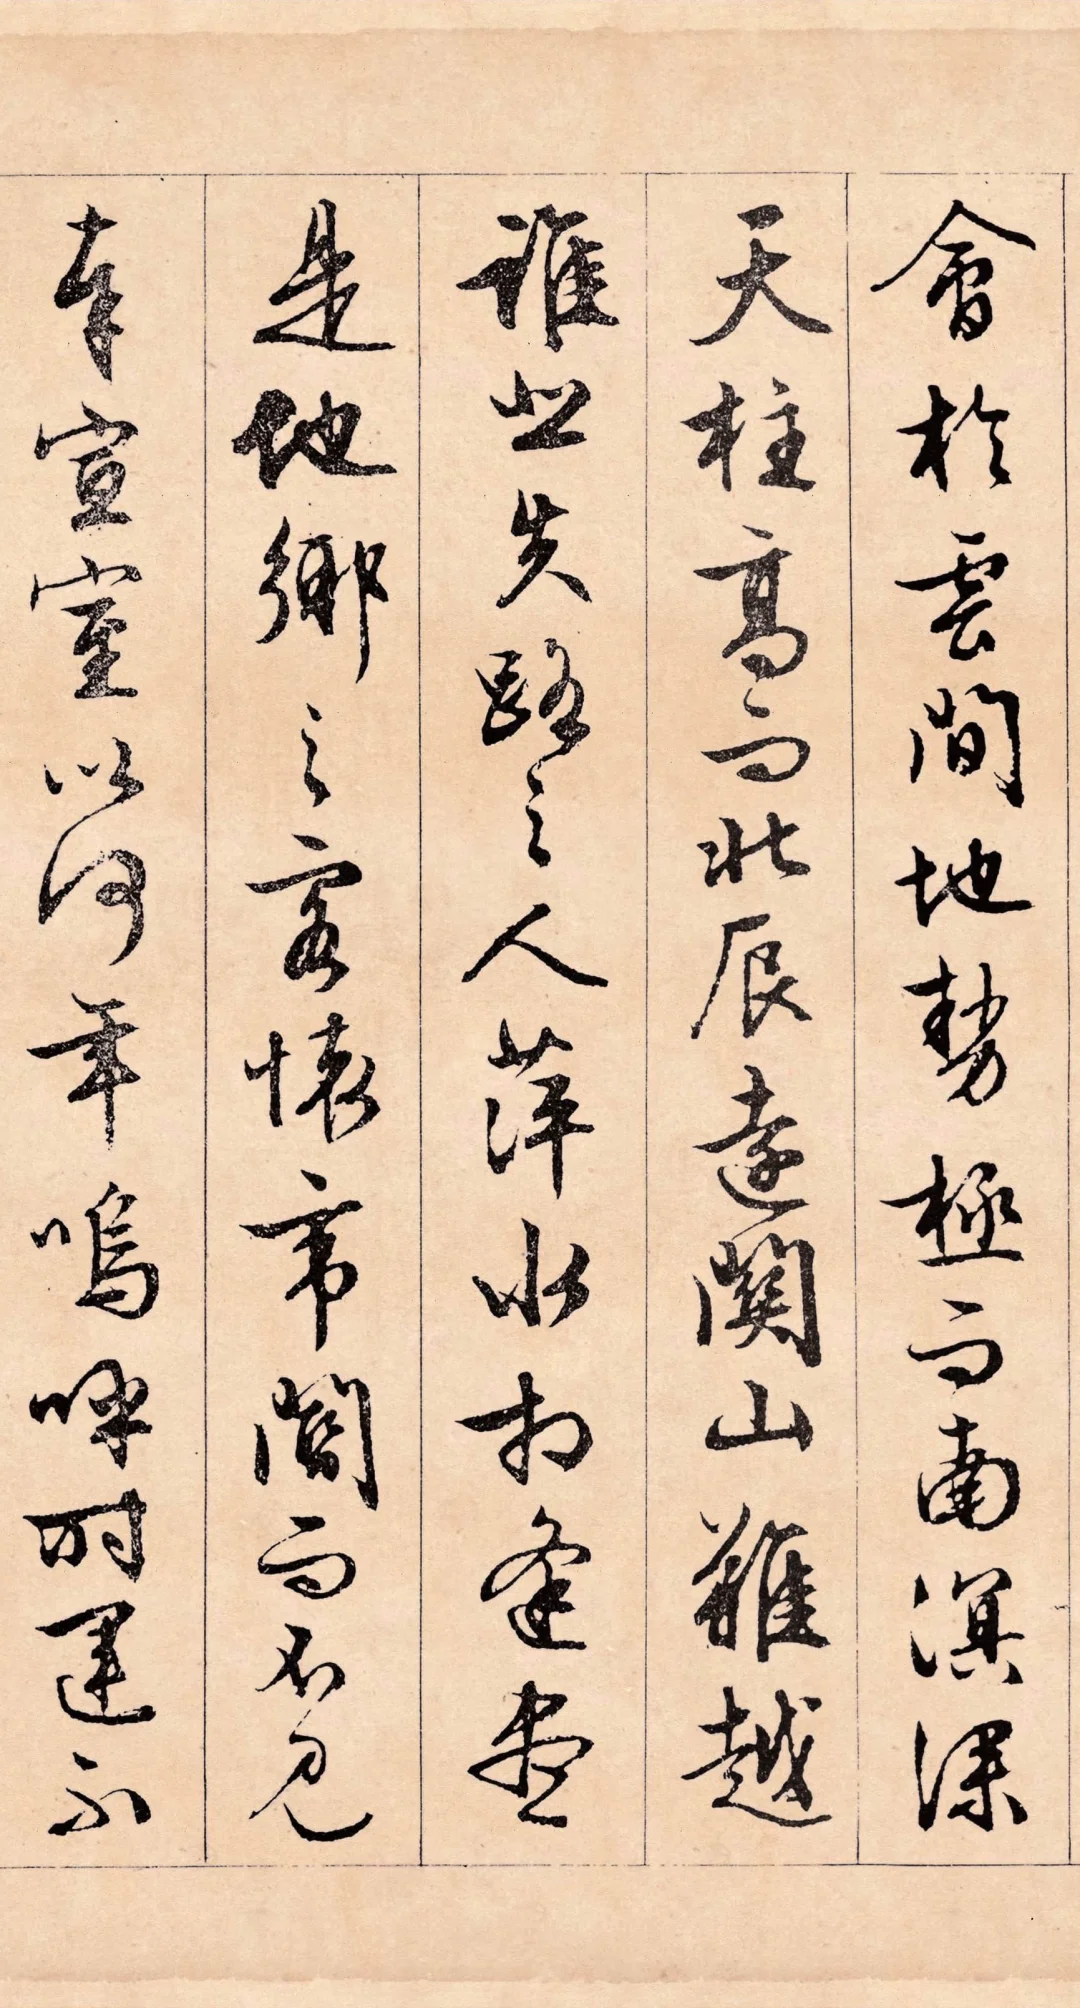 會於雲間地勢極而南溟深
天柱高而北辰遠關山難越
誰悲失路之人萍水相逢盡
是他鄉之客懷帝閽而不見
奉宣室以何年嗚呼時運不